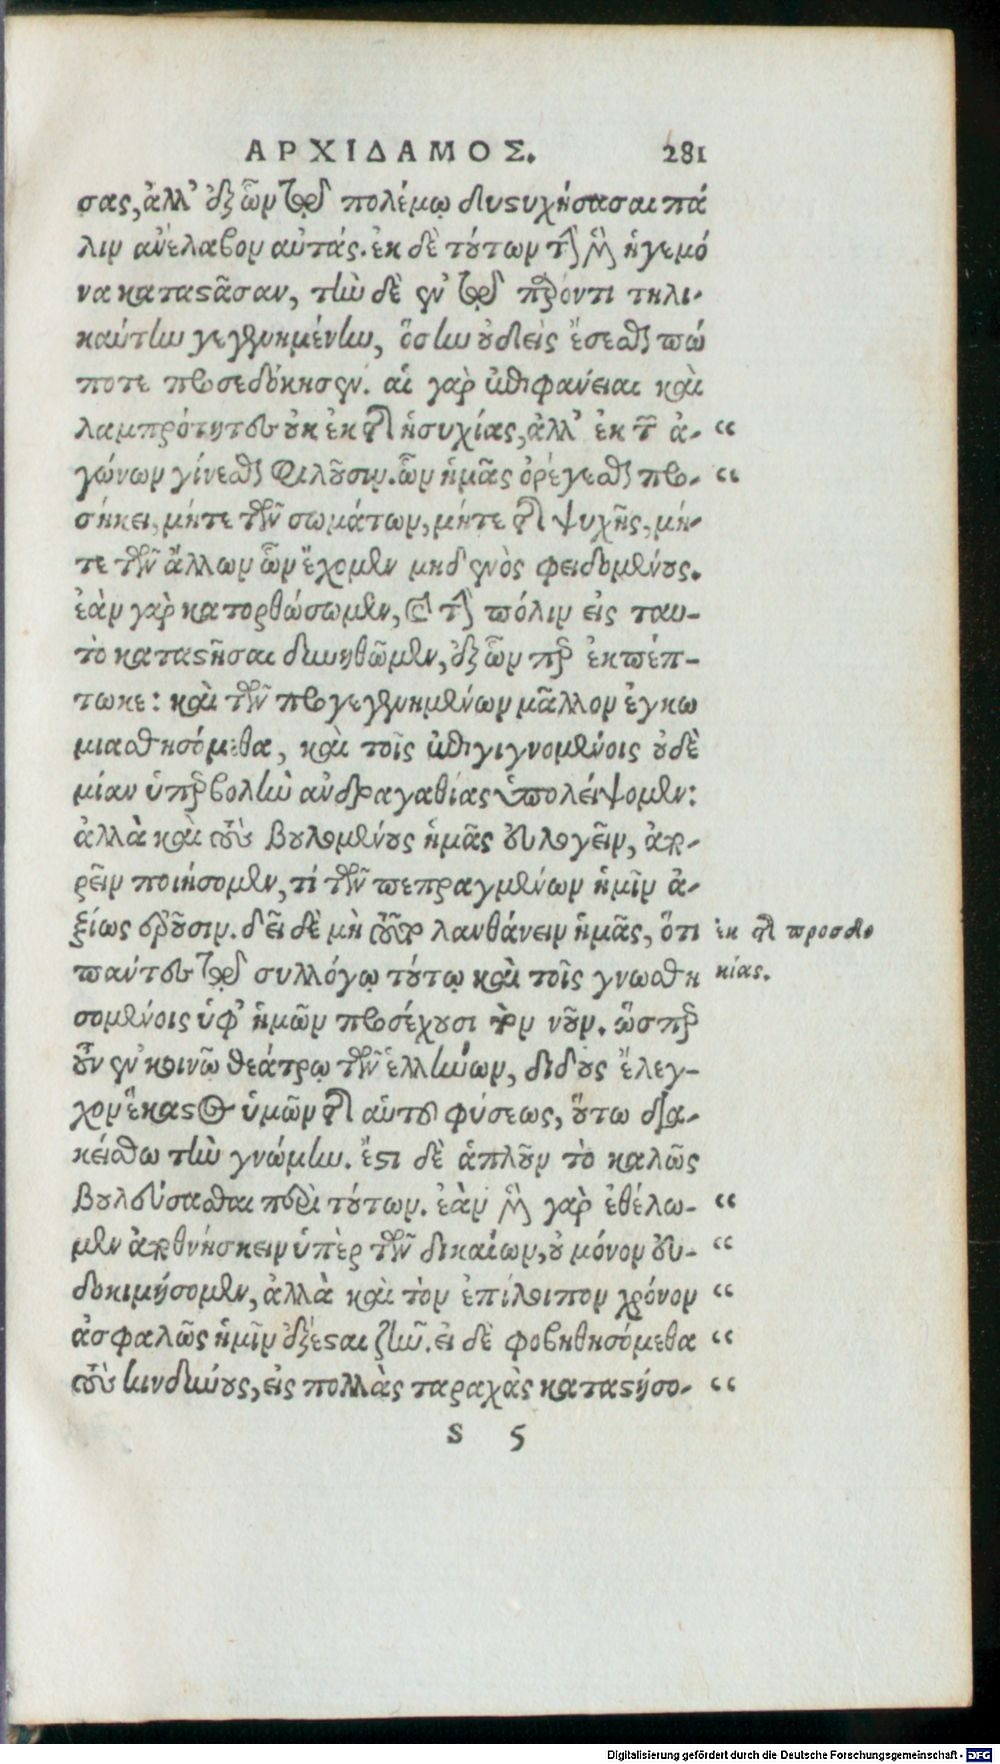 ΑΡΧΙΔΑΜΟΣ. 281
σας, ἀλλ' ἐξ ὧν τῷ πολέμῳ δυςυχήσασαι πά
λιν ἀνέλαβον αὐτάς. ἐκ δὲ τούτων τὴν μὲν ἡγεμό
να καταςᾶσαν, τὴν δὲ ἐν τῷ παρόντι τηλι-
καύτην γεγενημένην, ὅσην οὐδεὶς ἔσεσθαι πώ
ποτε προσεδόκησεν. αἱ γὰρ ἐπιφάνειαι καὶ
λαμπρότητες οὐκ ἐκ τῆς ἡσυχίας, ἀλλ' ἐκ τῶν ἀ- “
γώνων γίνεσθαι φιλοῦσιν. ὧν ἡμᾶς ὀρέγεσθαι προ- “
σήκει, μήτε τῶν σωμάτων, μήτε τῆς ψυχῆς, μή-
τε τῶν ἄλλων ὧν ἔχομεν μηδενὸς φειδομένους.
ἐὰν γὰρ κατορθώσωμεν, καὶ τὴν πόλιν εἰς ταυ-
τὸ καταςῆσαι δυνηθῶμεν, ἐξ ὧν περ ἐκπέπ-
τωκε: καὶ τῶν προγεγενημένων μᾶλλον ἐγκω
μιασθησόμεθα, καὶ τοῖς ἐπιγιγνομένοις οὐδε
μίαν ὑπερβολὴν ἀνδραγαθίας ὑπολείψομεν:
ἀλλὰ καὶ τοὺς βουλομένους ἡμᾶς εὐλογεῖν, ἀπο-
ρεῖν ποιήσομεν, τί τῶν πεπραγμένων ἡμῖν ἀ-
ξίως ἐροῦσιν. δεῖ δὲ μὴ τοῦτο λανθάνειν ἡμᾶς, ὅτι
πάντες τῷ συλλόγῳ τούτῳ καὶ τοῖς γνωσθη
σομένοις ὑφ' ἡμῶν προσέχουσι τὸν νοῦν. ὥσπερ
οὖν ἐν κοινῷ θεάτρῳ τῶν ἑλλήνων, διδοὺς ἔλεγ-
χον ἕκαςος ὑμῶν τῆς αὑτοῦ φύσεως, οὕτω δια-
κείσθω τὴν γνώμην. ἔςι δὲ ἁπλοῦν τὸ καλῶς
βουλεύσασθαι περὶ τούτων. ἐὰν μὲν γὰρ ἐθέλω- “
μεν ἀποθνήσκειν ὑπὲρ τῶν δικαίων, οὐ μόνον εὐ- “
δοκιμήσομεν, ἀλλὰ καὶ τὸν ἐπίλοιπον χρόνον “
ἀσφαλῶς ἡμῖν ἐξέςαι ζῆν. εἰ δὲ φοβηθησόμεθα “
τοὺς κινδύνους, εἰς πολλὰς ταραχὰς καταςήσο- “
ἐκ τῆς προσδο
κίας.
S 5
Digitalisierung gefördert durch die Deutsche Forschungsgemeinschaft - DFG